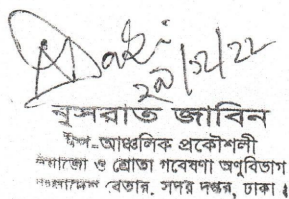 ২৯/১২/২২
নুসরাত জাবিন
উপ-আঞ্চলিক প্রকৌশলী
ও শ্রোতা গবেষণা অনুবিভাগ
বেতার, সদর দপ্তর, ঢাকা।